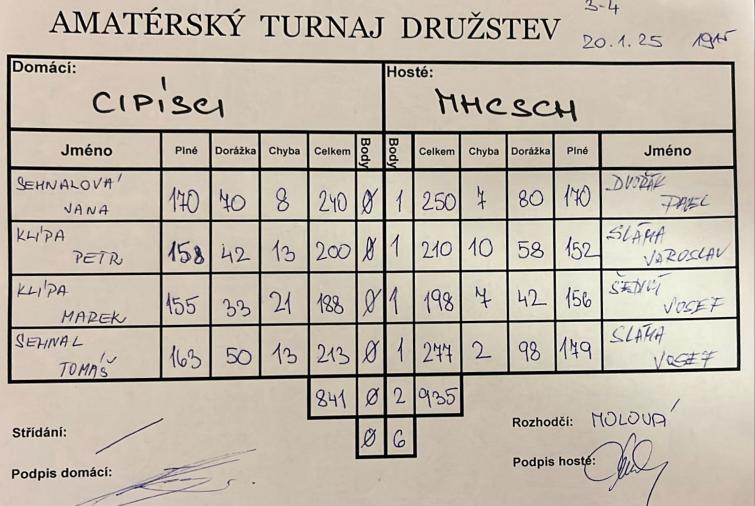 3-4
AMATÉRSKÝ TURNAJ DRUŽSTEV
20.1.25 19¹⁵
Domácí: Hosté:
CIPÍSCI MHCSCH
Jméno Plné Dorážka Chyba Celkem Body Body Celkem Chyba Dorážka Plné Jméno
SEHNALOVÁ JANA 170 70 8 240 0 1 250 7 80 170 DVOŘÁK PAVEL
KLÍPA PETR 158 42 13 200 0 1 210 10 58 152 SLÁMA JAROSLAV
KLÍPA MAREK 155 33 21 188 0 1 198 7 42 156 ŠEDIVÝ JOSEF
SEHNAL TOMÁŠ 163 50 13 213 0 1 277 2 98 179 SLÁMA JOSEF
841 0 2 935
0 6
Střídání: Rozhodčí: MOLOVÁ
Podpis domácí: Podpis hosté: